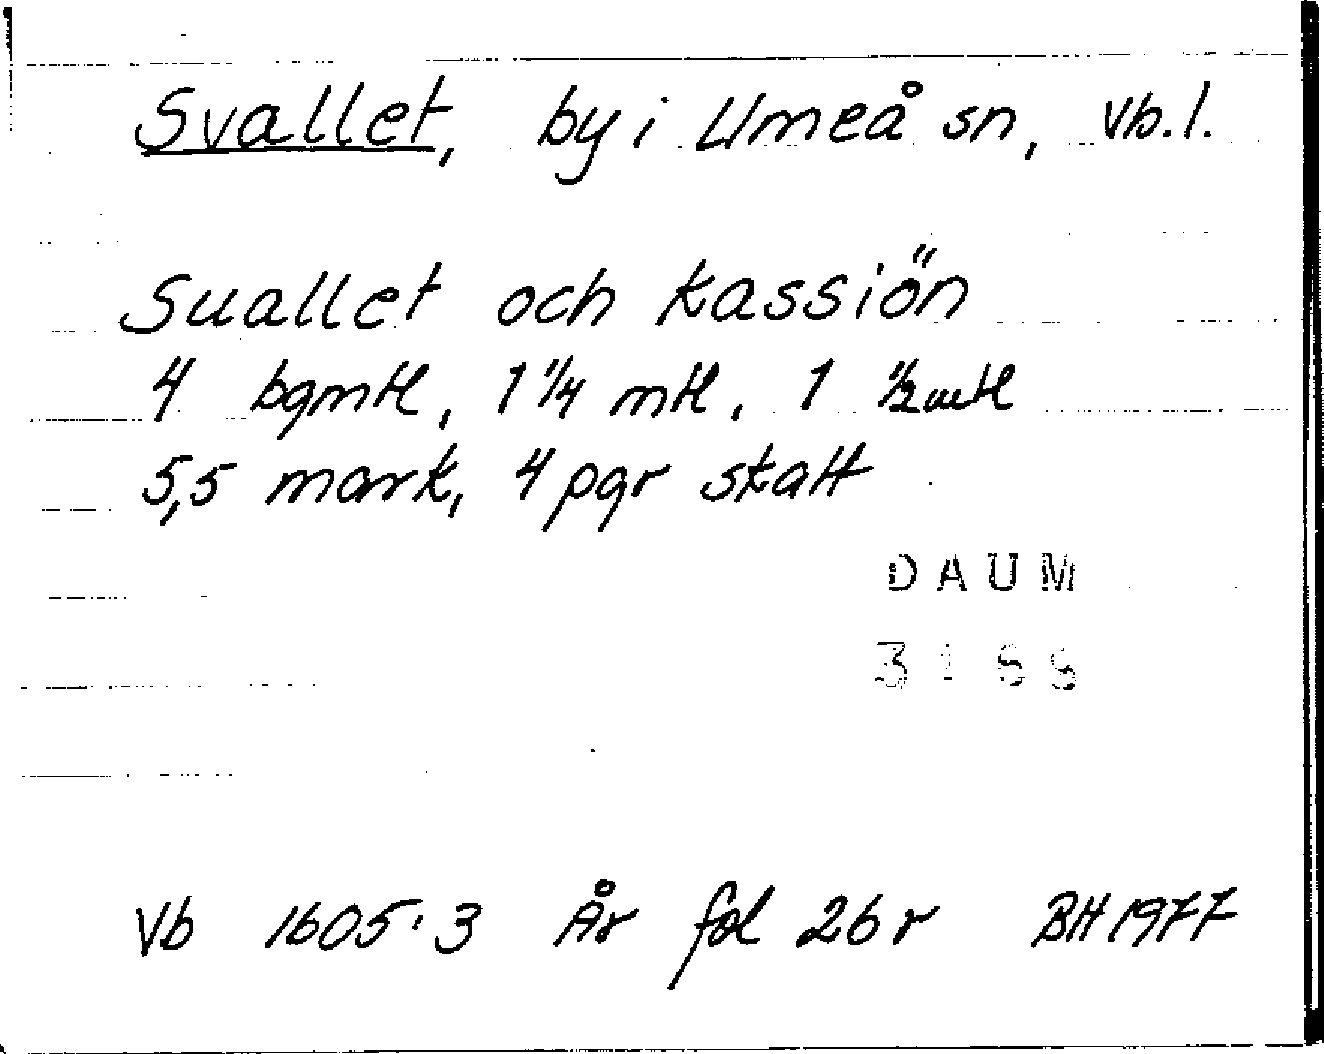 Svallet, by i Umeå sn, Vb.l.
Suallet och Kassiön
4 bgmtl, 1 1/4 mtl, 1 1/2 mtl
5,5 mark, 4 pgr skatt
DAUM
Vb 1605:3 År fol 26 r BH 1977